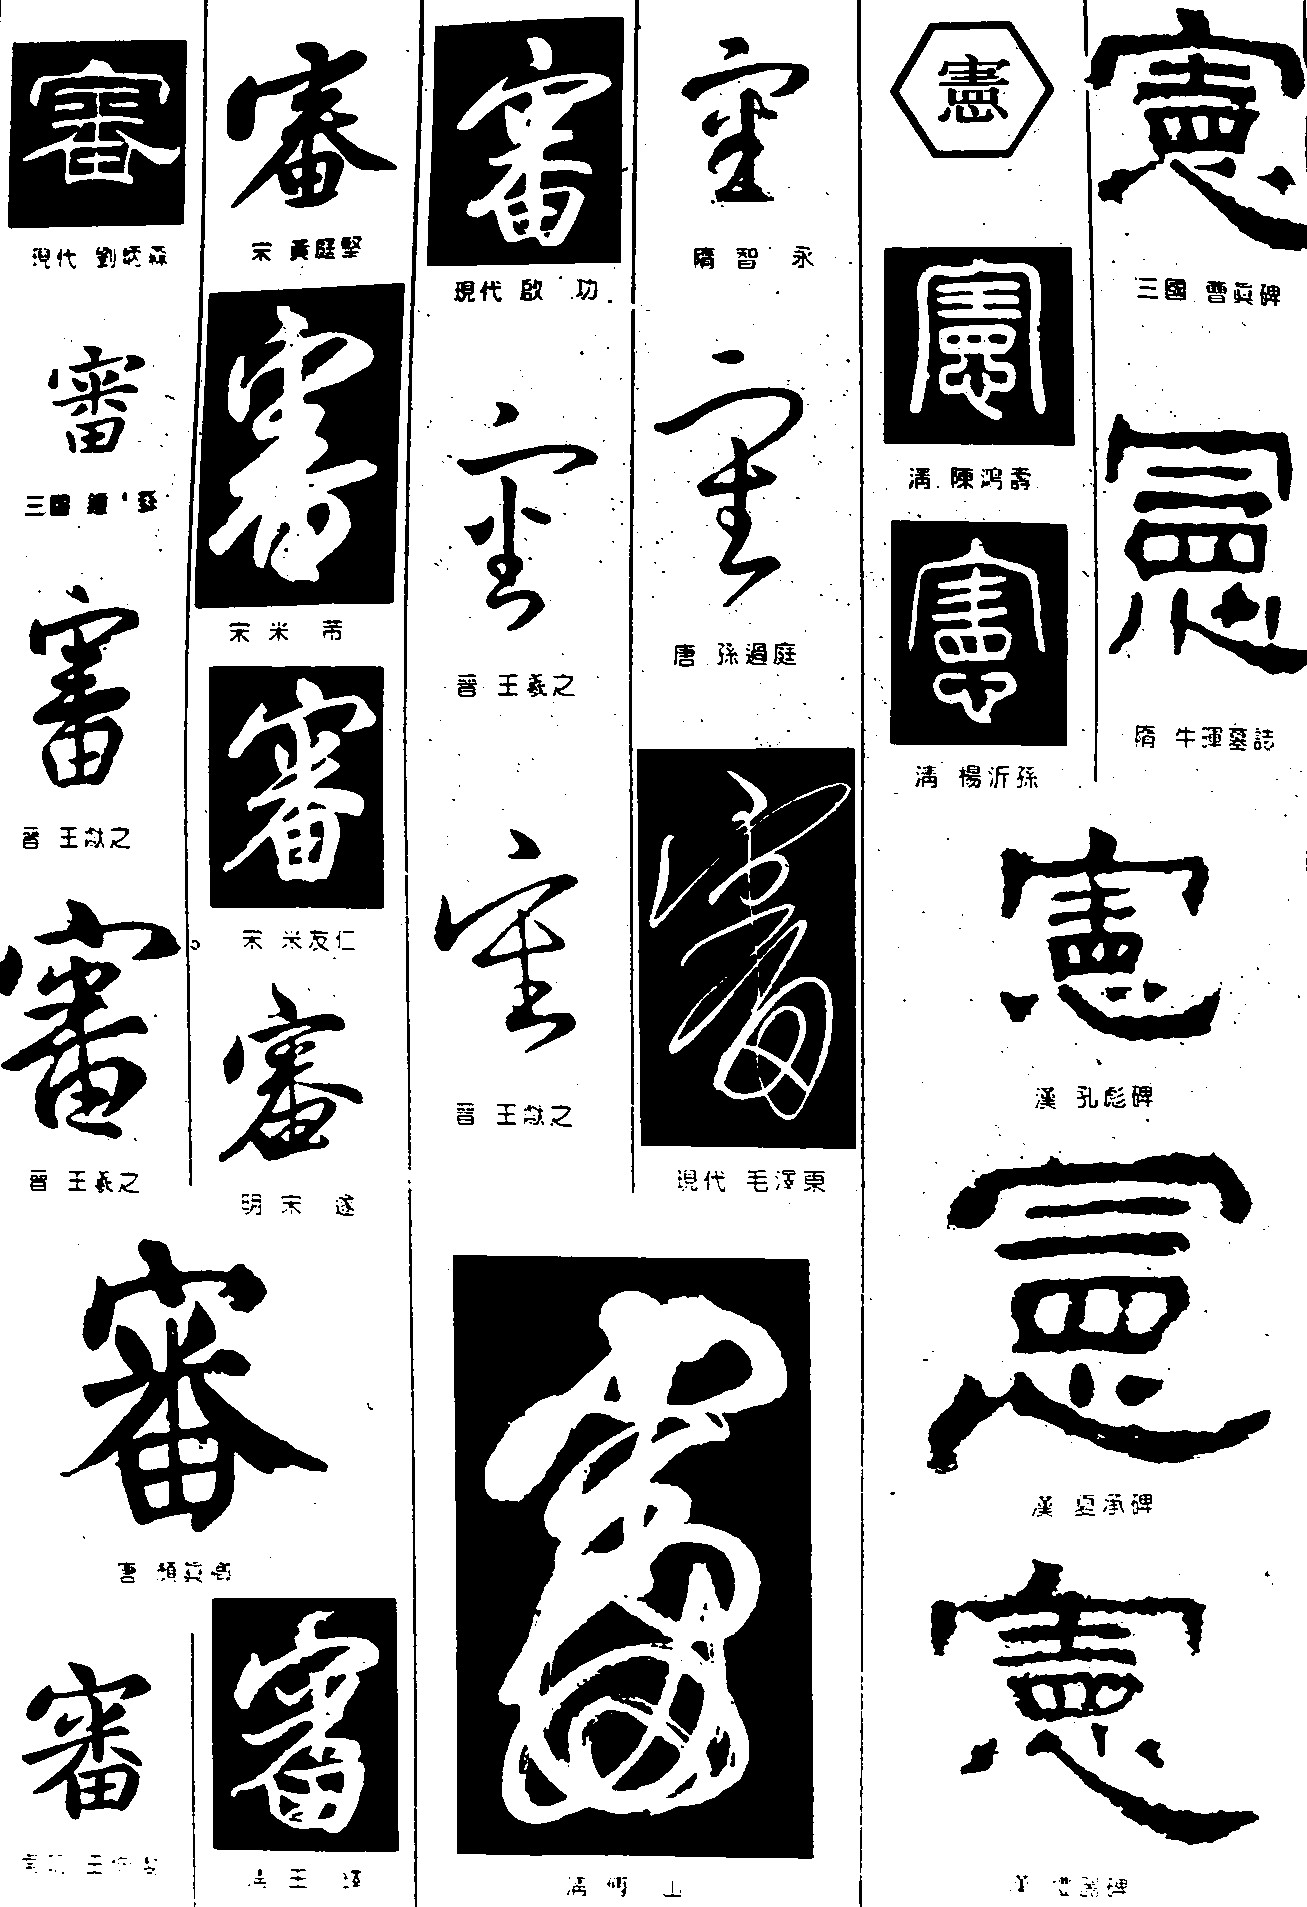 審
現代 劉炳森
審
三國 鍾繇
審
晉 王獻之
審
晉 王羲之
審
唐 顏真卿
審
審
宋 黃庭堅
審
宋 米芾
審
宋 米友仁
審
明 宋遂
審
清 王鐸
審
現代 啟功
審
晉 王羲之
審
晉 王獻之
審
清 傅山
審
隋 智永
審
唐 孫過庭
審
現代 毛澤東
憲
憲
清 陳鴻壽
憲
清 楊沂孫
憲
三國 曹真碑
憲
隋 牛暉墓誌
憲
漢 孔彪碑
憲
漢 夏承碑
憲